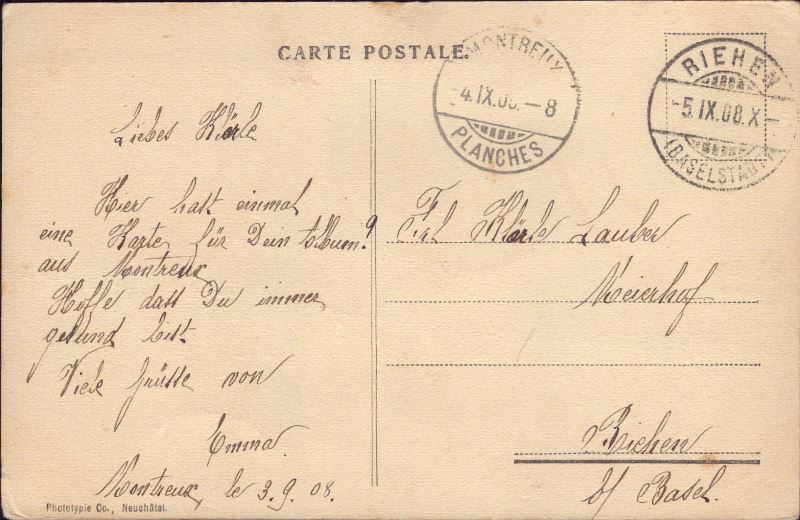 CARTE POSTALE.
MONTREUX
-4.IX.08.-8
PLANCHES
RIEHEN
-5.IX.08.X-
(BASELSTADT)
Liebes Klärle
Hier hast einmal
eine Karte für Dein Album
aus Montreux
Hoffe dass Du immer
gesund bist.
Viele Grüsse von
Emma.
Montreux, le 3.9.08.
Frl Klärle Lauber
Meierhof
Riehen
b/ Basel.
Phototypie Co., Neuchâtel.